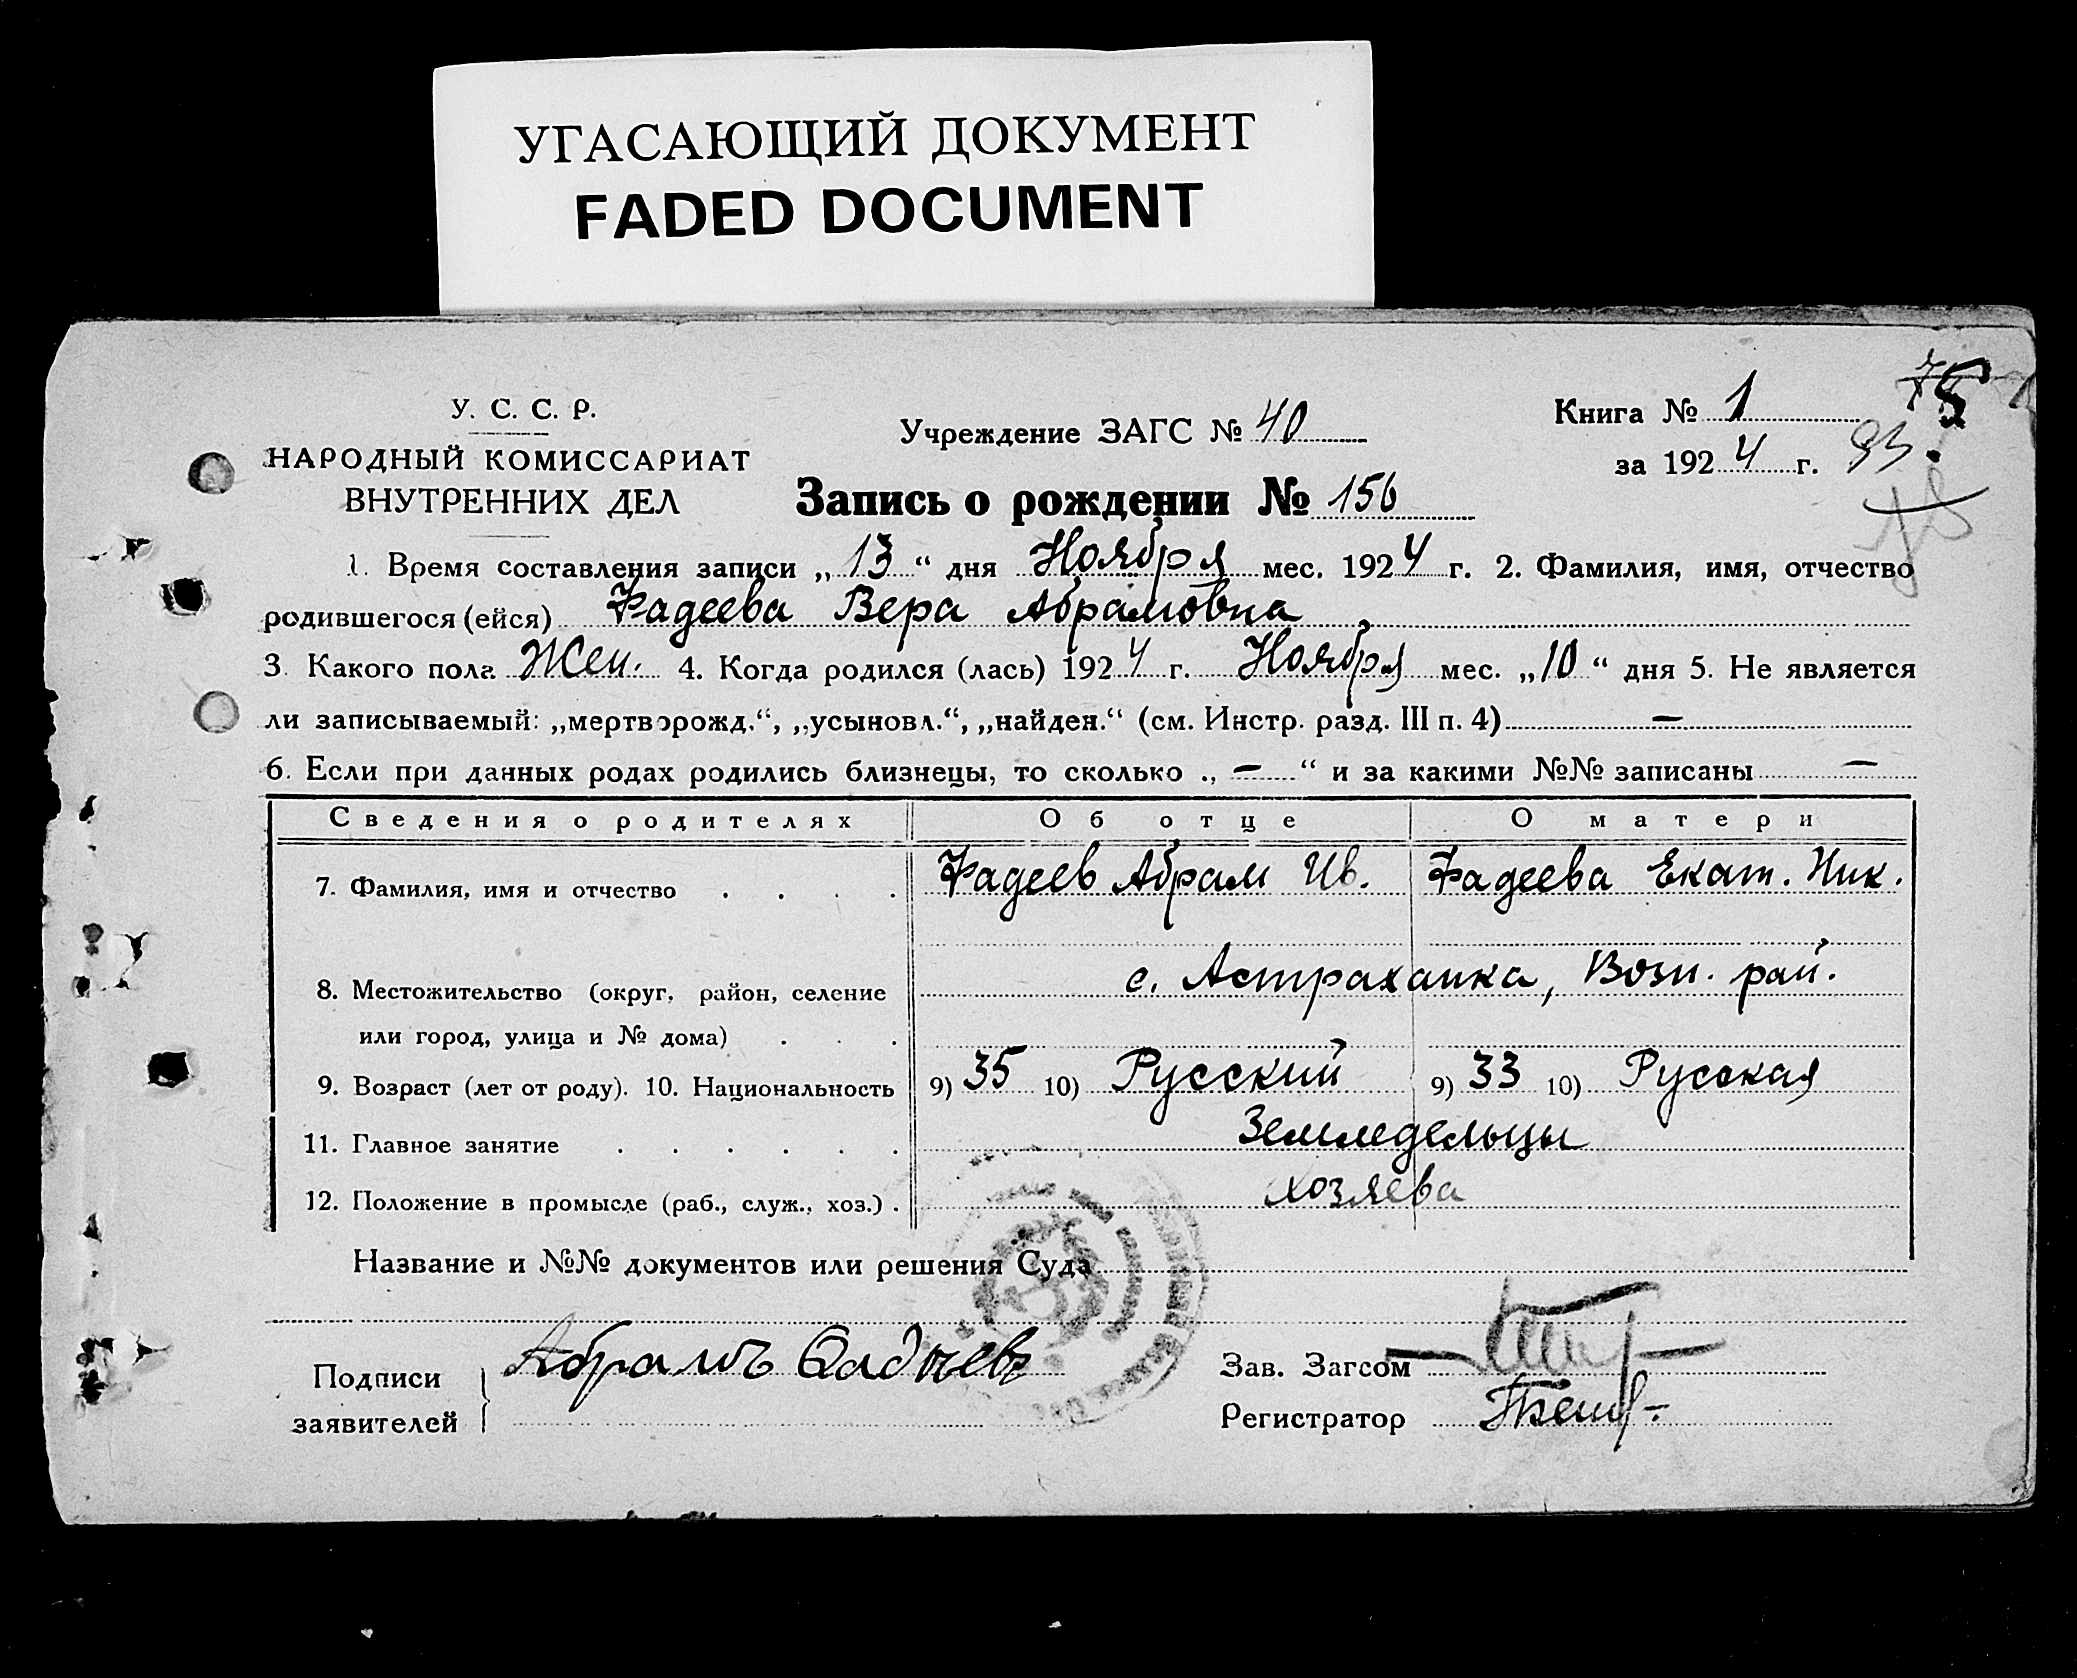 УГАСАЮЩИЙ ДОКУМЕНТ
FADED DOCUMENT
У. С. С. Р.
НАРОДНЫЙ КОМИССАРИАТ
ВНУТРЕННИХ ДЕЛ
Учреждение ЗАГС № 40
Книга № 1
за 1924 г. 93.
Запись о рождении № 156
1. Время составления записи „13“ дня Ноября мес. 1924 г. 2. Фамилия, имя, отчество
родившегося (ейся) Фадеева Вера Абрамовна
3. Какого пола Жен. 4. Когда родился (лась) 1924 г. Ноября мес. „10“ дня 5. Не является
ли записываемый: „мертворожд.“, „усыновл.“, „найден.“ (см. Инстр. разд. III п. 4) —
6. Если при данных родах родились близнецы, то сколько „—“ и за какими №№ записаны —
Сведения о родителях Об отце О матери
7. Фамилия, имя и отчество . . . . Фадеев Абрам Ив. Фадеева Екат. Ник.
8. Местожительство (округ, район, селение с. Астраханка, Возн. рай.
или город, улица и № дома) . . .
9. Возраст (лет от роду). 10. Национальность 9) 35 10) Русский 9) 33 10) Русская
11. Главное занятие . . . . . . Земледельцы
12. Положение в промысле (раб., служ., хоз.) . хозяева
Название и №№ документов или решения Суда
Подписи
заявителей
Абрамъ Фадѣевъ
Зав. Загсом
Регистратор